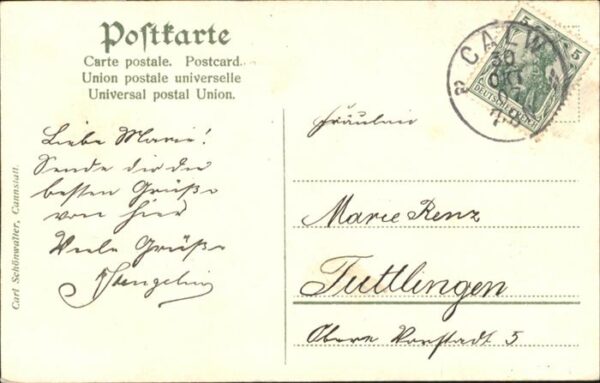 Postkarte
Carte postale. Postcard.
Union postale universelle
Universal postal Union.
5 5
DEUTSCHES REICH
CALW
30
OKT
Liebe Marie!
Sende dir die
besten Grüße
von hier
Viele Grüße
Fräulein
Marie Renz
Tuttlingen
Obere Vorstadt 5
Carl Schönwalter, Cannstatt.